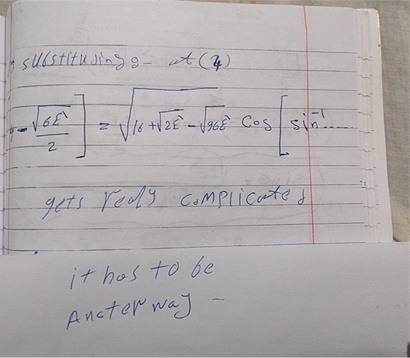 substituding at (4)
- √6E/2 ] = √16 + √2E - √96E cos [ sin⁻¹ ....
gets realy complicated
it has to be
Anoter way -